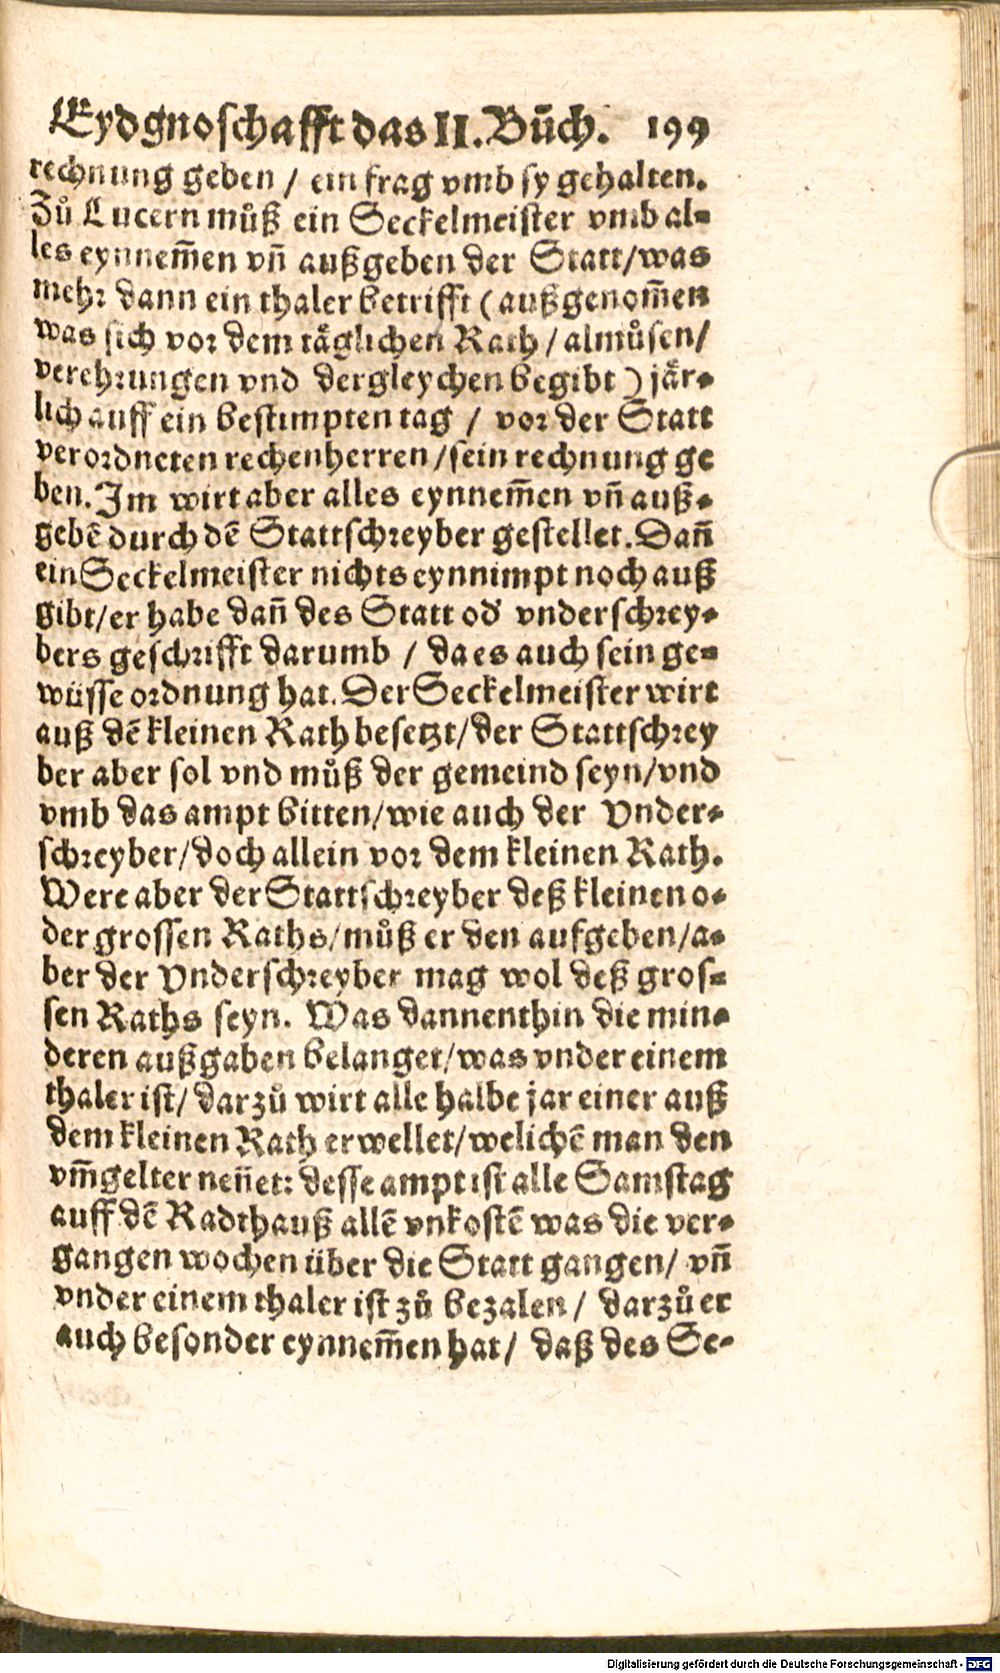 Eydgnoschafft das II. Bůch. 199
rechnung geben / ein frag vmb sy gehalten.
Zů Lucern můß ein Seckelmeister vmb al-
les eynnem̃en vñ außgeben der Statt/was
mehr dann ein thaler betrifft (außgenom̃en
was sich vor dem täglichen Rath / almůsen/
verehrungen vnd dergleychen begibt) jär-
lich auff ein bestimpten tag / vor der Statt
verordneten rechenherren/sein rechnung ge
ben. Im wirt aber alles eynnem̃en vñ auß-
gebẽ durch dẽ Stattschreyber gestellet. Dañ
ein Seckelmeister nichts eynnimpt noch auß
gibt/er habe dañ des Statt od' vnderschrey-
bers geschrifft darumb / da es auch sein ge-
wüsse ordnung hat. Der Seckelmeister wirt
auß dẽ kleinen Rath besetzt/der Stattschrey
ber aber sol vnd můß der gemeind seyn/vnd
vmb das ampt bitten/wie auch der Vnder-
schreyber/doch allein vor dem kleinen Rath.
Were aber der Stattschreyber deß kleinen o-
der grossen Raths/můß er den aufgeben/a-
ber der Vnderschreyber mag wol deß gros-
sen Raths seyn. Was dannenthin die min-
deren außgaben belanget/was vnder einem
thaler ist/ darzů wirt alle halbe jar einer auß
dem kleinen Rath erwellet/welichẽ man den
vm̃gelter neñet: desse ampt ist alle Samstag
auff dẽ Radthauß allẽ vnkostẽ was die ver-
gangen wochen über die Statt gangen/ vñ
vnder einem thaler ist zů bezalen / darzů er
auch besonder eynnem̃en hat/ daß des Se-
Digitalisierung gefördert durch die Deutsche Forschungsgemeinschaft - DFG